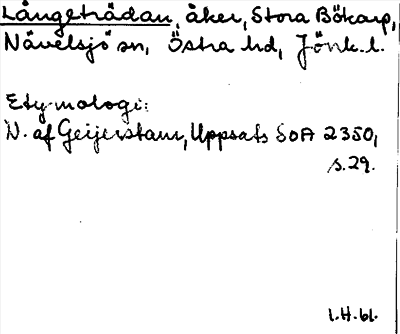 Långeträdan, åker, Stora Bökarp,
Nävelsjö sn, Östra hd, Jönk. l.
Etymologi:
N. af Geijerstam, Uppsats SOA 2350,
s. 29.
1.H.61.